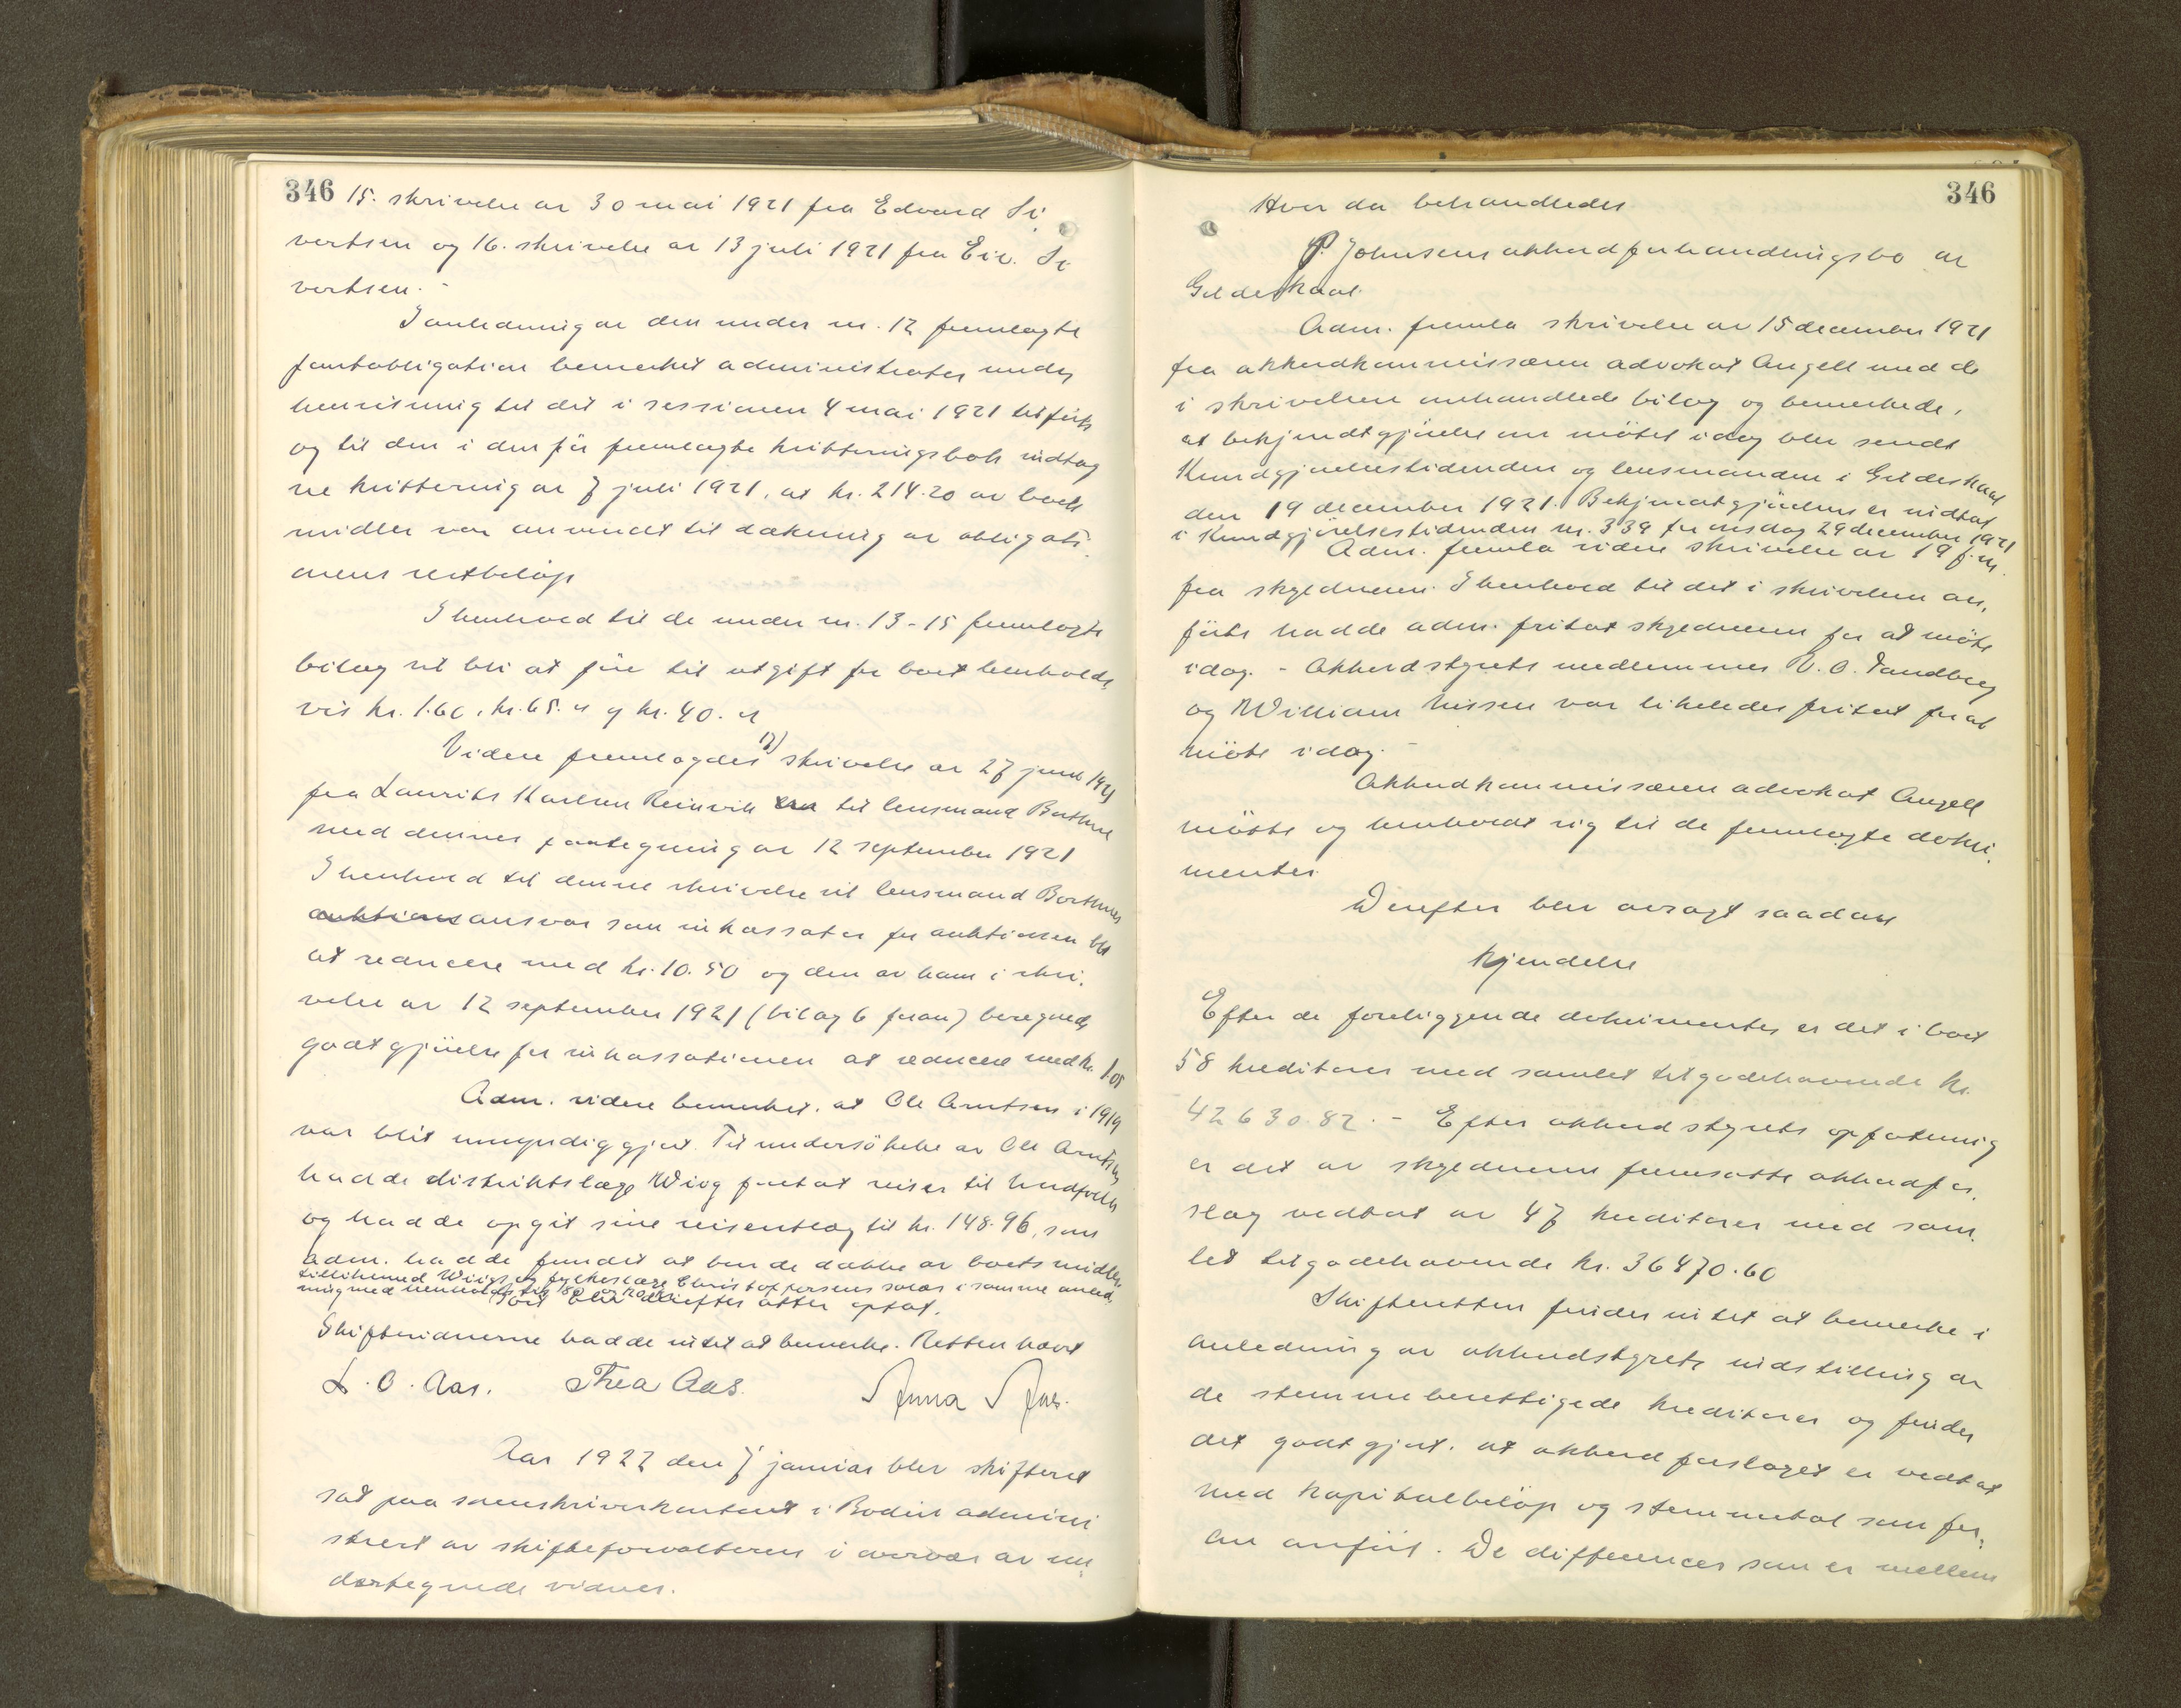 346 15. skrivelse av 30 mai 1921 fra Edvard Si
vertsen og 16. skrivelse av 13 juli 1921 fra Eiv. Si
vertsen. -
I anledning av den under nr. 12 fremlagte
pantobligation bemerket administrator under
henvisning til det i sessionen 4 mai 1921 tilførte
og til den i den før fremlagte kvitteringsbok indtag
ne kvittering av 7 juli 1921, at kr. 214.20 av boets
midler var anvendt til dækning av obligati
onens restbeløp
I henhold til de under nr. 13-15 fremlagte
bilag vil bli at føre til utgift for boet henholds
vis kr. 1.60, kr. 65.- og kr. 40.-
Videre fremlagdes 17) skrivelse av 27 juni 1921
fra Laurits Karlsen Reinvik til lensmand Borthne
med dennes paategning av 12 september 1921
I henhold til denne skrivelse vil lensmand Borthnes
auktions ansvar som inkassator for auktionen bli
at reducere med kr. 10.50 og den av ham i skri,
velse av 12 september 1921 (bilag 6 foran) beregnede
godtgjørelse for inkassationen at reducere med kr. 1.05
Adm. videre bemerket, at Ole Arntsen i 1919
var blit umyndiggjort. Til undersøkelse av Ole Arntsen
hadde distriktslæge Wiig foretat reiser til
og hadde opgit sine reiseutlæg til kr. 148.96, som
adm. hadde fundet at burde dække av boets midler
tillikemed Wiigs og fylkeslæge Christoffersens salær i samme anled
ning med henholdsvis
Boet blir derefter atter optat.
Skiftevidnerne hadde intet at bemerke. Retten hævet
L. O. Aas. Thea Aas. Anna Aas.
Aar 1922 den 7 januar blev skifteret
sat paa sorenskriverkontoret i Bodin admini
strert av skifteforvalteren i overvær av un
dertegnede vidner.
346
Hvor da behandledes
P. Johnsens akkordforhandlingsbo av
Gildeskaal.
Adm. fremla skrivelse av 15 december 1921
fra akkordkommissæren advokat Angell med de
i skrivelsen omhandlede bilag og bemerkede,
at bekjendtgjørelse om møtet idag blev sendt
Kundgjørelsestidenden og lensmanden i Gildeskaal
den 19 december 1921. Bekjendtgjørelsen er indtat
i Kundgjørelsestidenden nr. 339 for onsdag 29 december 1921
Adm. fremla videre skrivelse av 19 f.m.
fra skyldneren. I henhold til det i skrivelsen an,
førte hadde adm. fritat skyldneren for at møte
idag. - Akkordstyrets medlemmer V. O. Sandberg
og William Nissen var likeledes fritat for at
møte idag. -
Akkordkommissæren advokat Angell
møtte og henholdt sig til de fremlagte doku,
menter.
Derefter blev avsagt saadan
Kjendelse
Efter de foreliggende dokumenter er det i boet
58 kreditorer med samlet tilgodehavende kr.
42630.82. - Efter akkordstyrets opfatning
er det av skyldneren fremsatte akkordfor,
slag vedtat av 47 kreditorer med sam,
let tilgodehavende kr. 36470.60
Skifteretten finder intet at bemerke i
anledning av akkordstyrets indstilling av
de stemmeberettigede kreditorer og finder
det godtgjort, at akkordforslaget er vedtat
med kapitalbeløp og stemmetal som for,
an anført. De differencer som er mellem